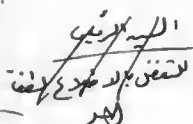 السيد الرئيس
للتفضل بالاطلاع لطفا